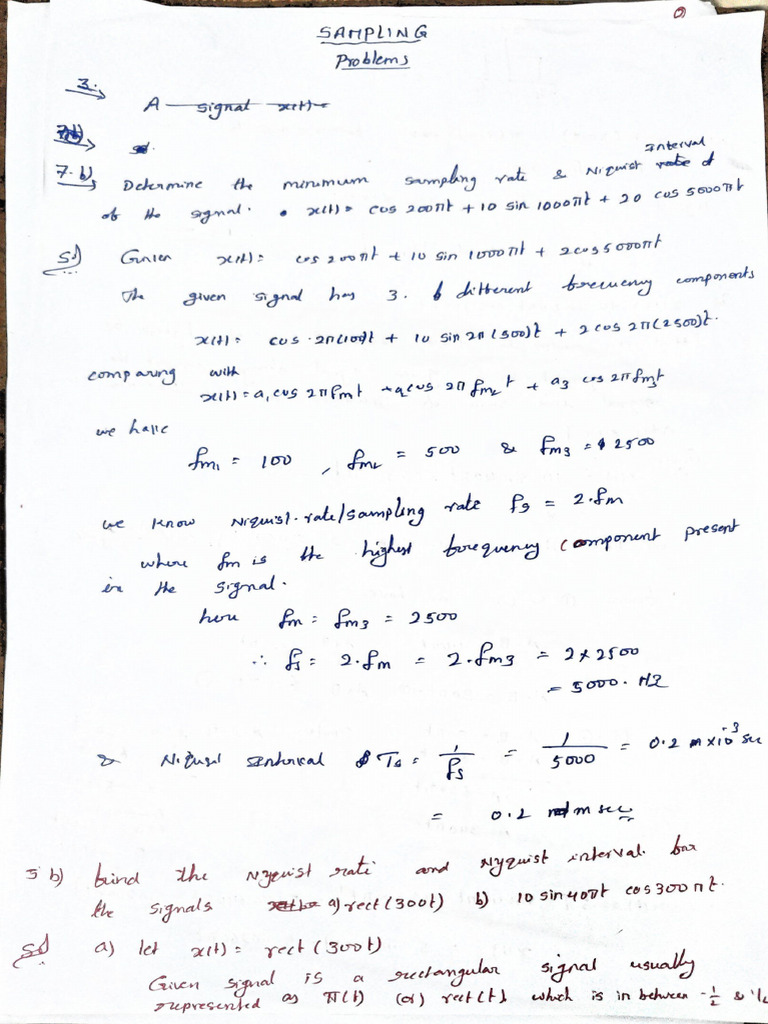 SAMPLING
Problems
3.
A signal x(t)=
7.b) Determine the minimum sampling rate & Niquist rate of Interval
of the signal. x(t)= cos 200πt + 10 sin 1000πt + 20 cos 5000πt
Sol) Given x(t)= cos 200πt + 10 sin 1000πt + 2cos 5000πt
The given signal has 3. different frequency components
x(t)= cos 2π(100)t + 10 sin 2π(500)t + 2 cos 2π(2500)t.
comparing with
x(t)= a1 cos 2πfm1t + a2 cos 2πfm2t + a3 cos 2πfm3t
we have
fm1 = 100, fm2 = 500 & fm3 = 2500
we know Niquist.rate/sampling rate fs = 2.fm
where fm is the highest frequency component present
in the signal.
here fm = fm3 = 2500
∴ fs = 2.fm = 2.fm3 = 2×2500
= 5000. HZ
& Ts = 1/fs = 1/5000 = 0.2 ×10^-3 sec
= 0.2 m sec
5 b) find the Nyquist rate and Nyquist interval for
the signals a) rect(300t) b) 10 sin 40πt cos 300πt.
Sol a) let x(t) = rect(300t)
Given signal is a rectangular signal usually
represented as π(t) (or) rect(t) which is in between -1/2 & 1/2